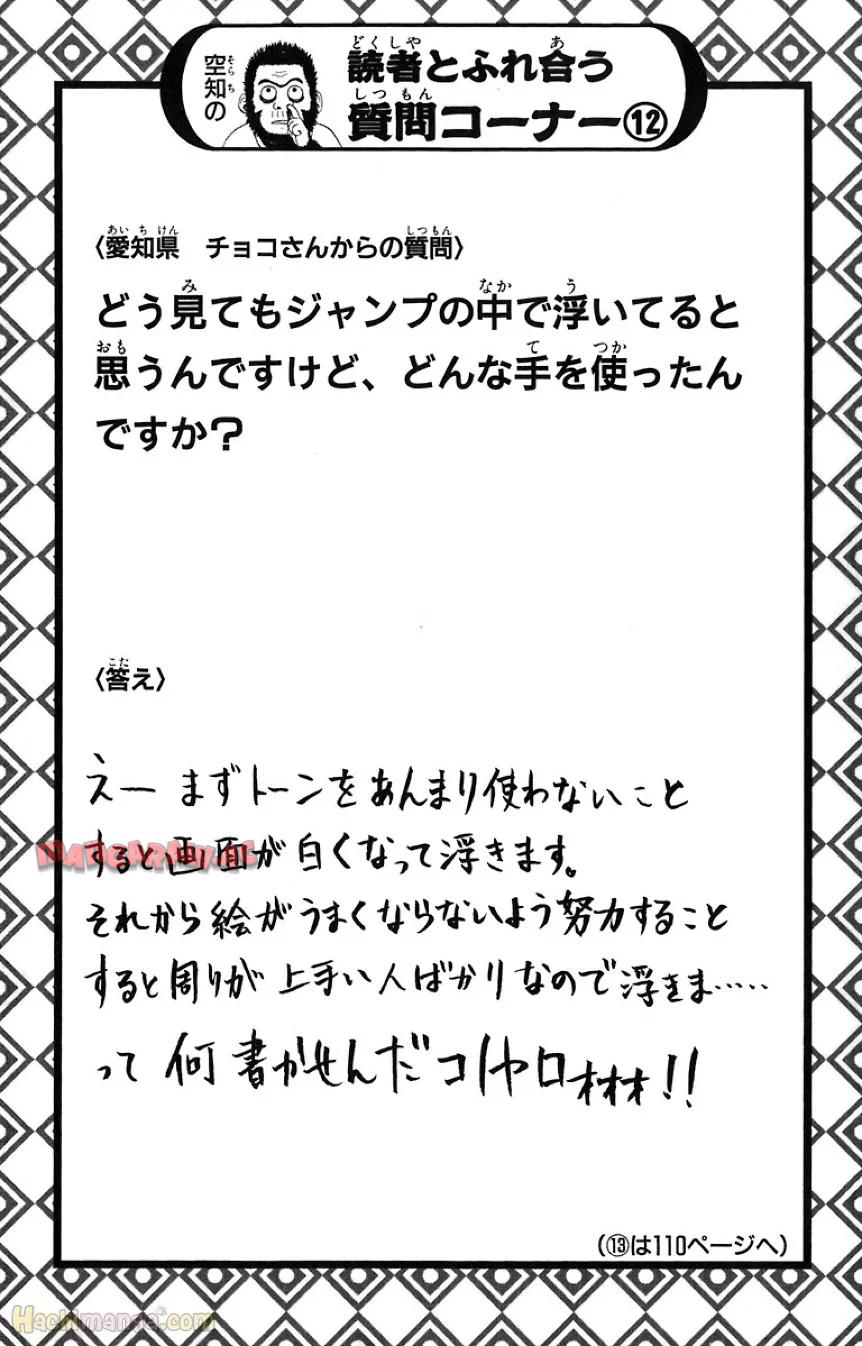 空知の
読者とふれ合う
質問コーナー⑫
〈愛知県 チョコさんからの質問〉
どう見てもジャンプの中で浮いてると
思うんですけど、どんな手を使ったん
ですか?
〈答え〉
えー まずトーンをあんまり使わないこと
すると画面が白くなって浮きます。
それから絵がうまくならないよう努力すること
すると周りが上手い人ばかりなので浮きま……
って 何書かせんだコノヤロォォォ!!
(⑬は110ページへ)
Hachimanga.com